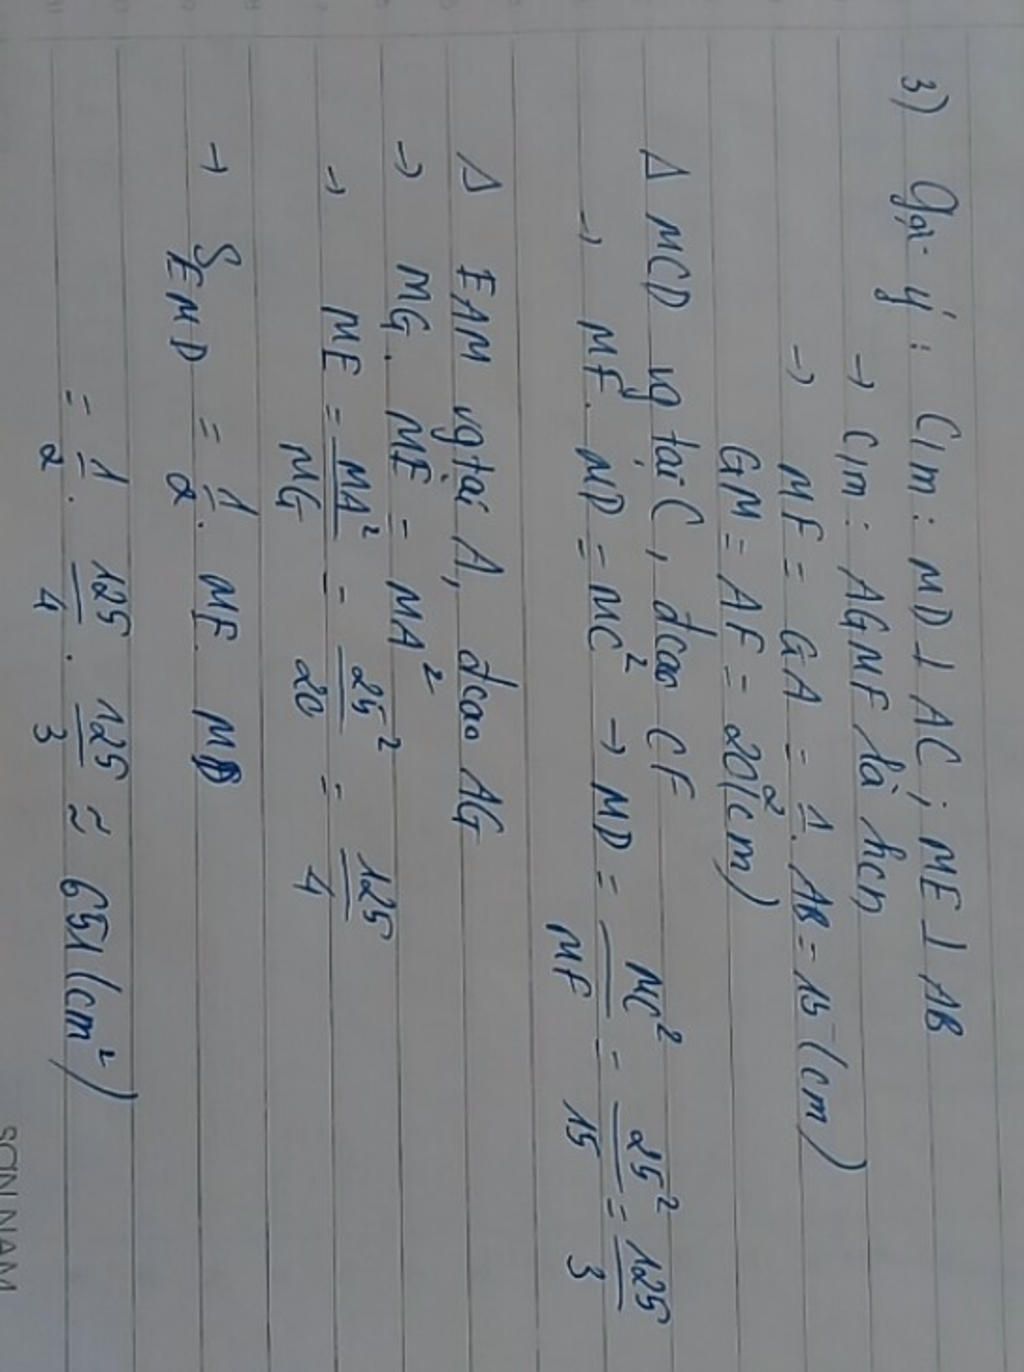 3) Gợi ý : C/m : MD ⊥ AC ; ME ⊥ AB
→ C/m : AGMF là hcn
→ MF = GA = 1/2 . AB = 15 (cm)
GM = AF = 20 (cm)
Δ MCD vg tại C, đcao CF
→ MF . MD = MC² → MD = MC²/MF = 25²/15 = 125/3
Δ EAM vg tại A, đcao AG
→ MG . ME = MA²
→ ME = MA²/MG = 25²/20 = 125/4
→ S EMD = 1/2 . ME . MD
= 1/2 . 125/4 . 125/3 ≈ 651 (cm²)
SON NAM